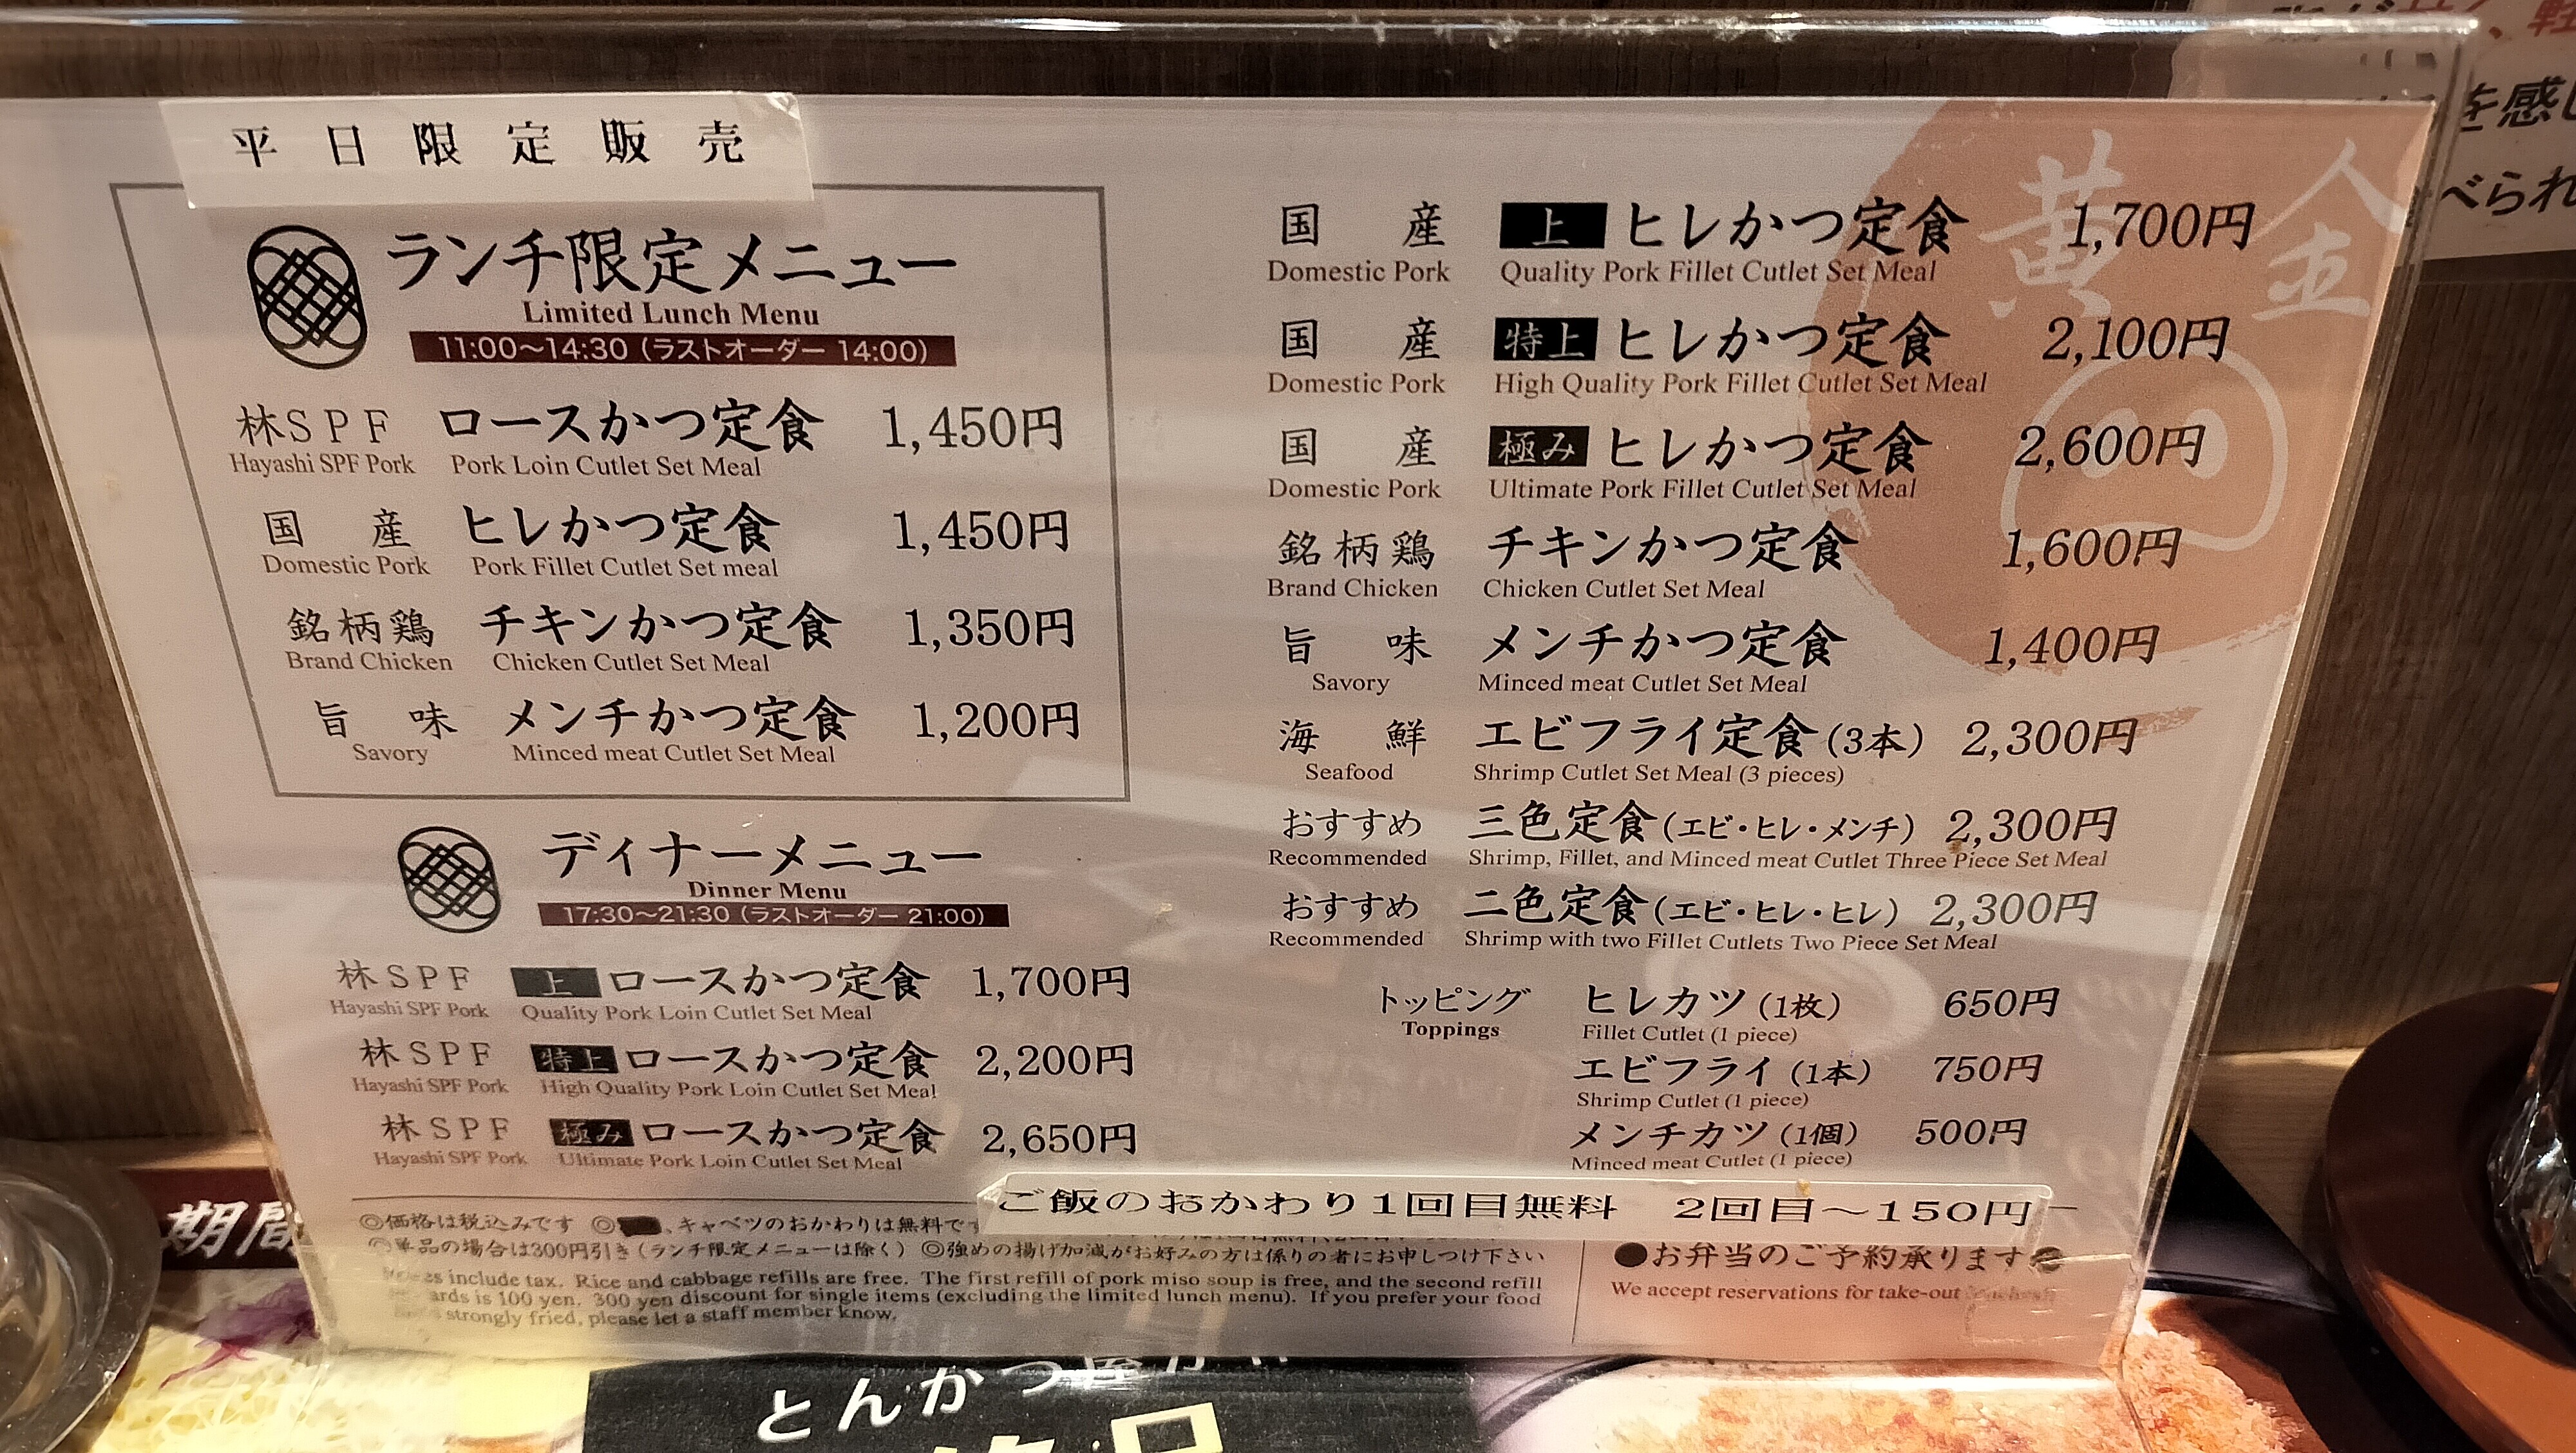 平日限定販売
ランチ限定メニュー
Limited Lunch Menu
11:00〜14:30（ラストオーダー 14:00）
林SPF ロースかつ定食 1,450円
Hayashi SPF Pork Pork Loin Cutlet Set Meal
国産 ヒレかつ定食 1,450円
Domestic Pork Pork Fillet Cutlet Set meal
銘柄鶏 チキンかつ定食 1,350円
Brand Chicken Chicken Cutlet Set Meal
旨味 メンチかつ定食 1,200円
Savory Minced meat Cutlet Set Meal
ディナーメニュー
Dinner Menu
17:30〜21:30（ラストオーダー 21:00）
林SPF 上 ロースかつ定食 1,700円
Hayashi SPF Pork Quality Pork Loin Cutlet Set Meal
林SPF 特上 ロースかつ定食 2,200円
Hayashi SPF Pork High Quality Pork Loin Cutlet Set Meal
林SPF 極み ロースかつ定食 2,650円
Hayashi SPF Pork Ultimate Pork Loin Cutlet Set Meal
黄金
国産 上 ヒレかつ定食 1,700円
Domestic Pork Quality Pork Fillet Cutlet Set Meal
国産 特上 ヒレかつ定食 2,100円
Domestic Pork High Quality Pork Fillet Cutlet Set Meal
国産 極み ヒレかつ定食 2,600円
Domestic Pork Ultimate Pork Fillet Cutlet Set Meal
銘柄鶏 チキンかつ定食 1,600円
Brand Chicken Chicken Cutlet Set Meal
旨味 メンチかつ定食 1,400円
Savory Minced meat Cutlet Set Meal
海鮮 エビフライ定食（3本） 2,300円
Seafood Shrimp Cutlet Set Meal (3 pieces)
おすすめ 三色定食（エビ・ヒレ・メンチ） 2,300円
Recommended Shrimp, Fillet, and Minced meat Cutlet Three Piece Set Meal
おすすめ 二色定食（エビ・ヒレ・ヒレ） 2,300円
Recommended Shrimp with two Fillet Cutlets Two Piece Set Meal
トッピング ヒレカツ（1枚） 650円
Toppings Fillet Cutlet (1 piece)
エビフライ（1本） 750円
Shrimp Cutlet (1 piece)
メンチカツ（1個） 500円
Minced meat Cutlet (1 piece)
ご飯のおかわり1回目無料 2回目〜150円
◎価格は税込みです ◎、キャベツのおかわりは無料です
単品の場合は300円引き（ランチ限定メニューは除く） ◎強めの揚げ加減がお好みの方は係りの者にお申しつけ下さい
include tax. Rice and cabbage refills are free. The first refill of pork miso soup is free, and the second refill
is 100 yen. 300 yen discount for single items (excluding the limited lunch menu). If you prefer your food
strongly fried, please let a staff member know.
●お弁当のご予約承ります●
We accept reservations for take-out
期間
を感じ
べられ
とんかつ